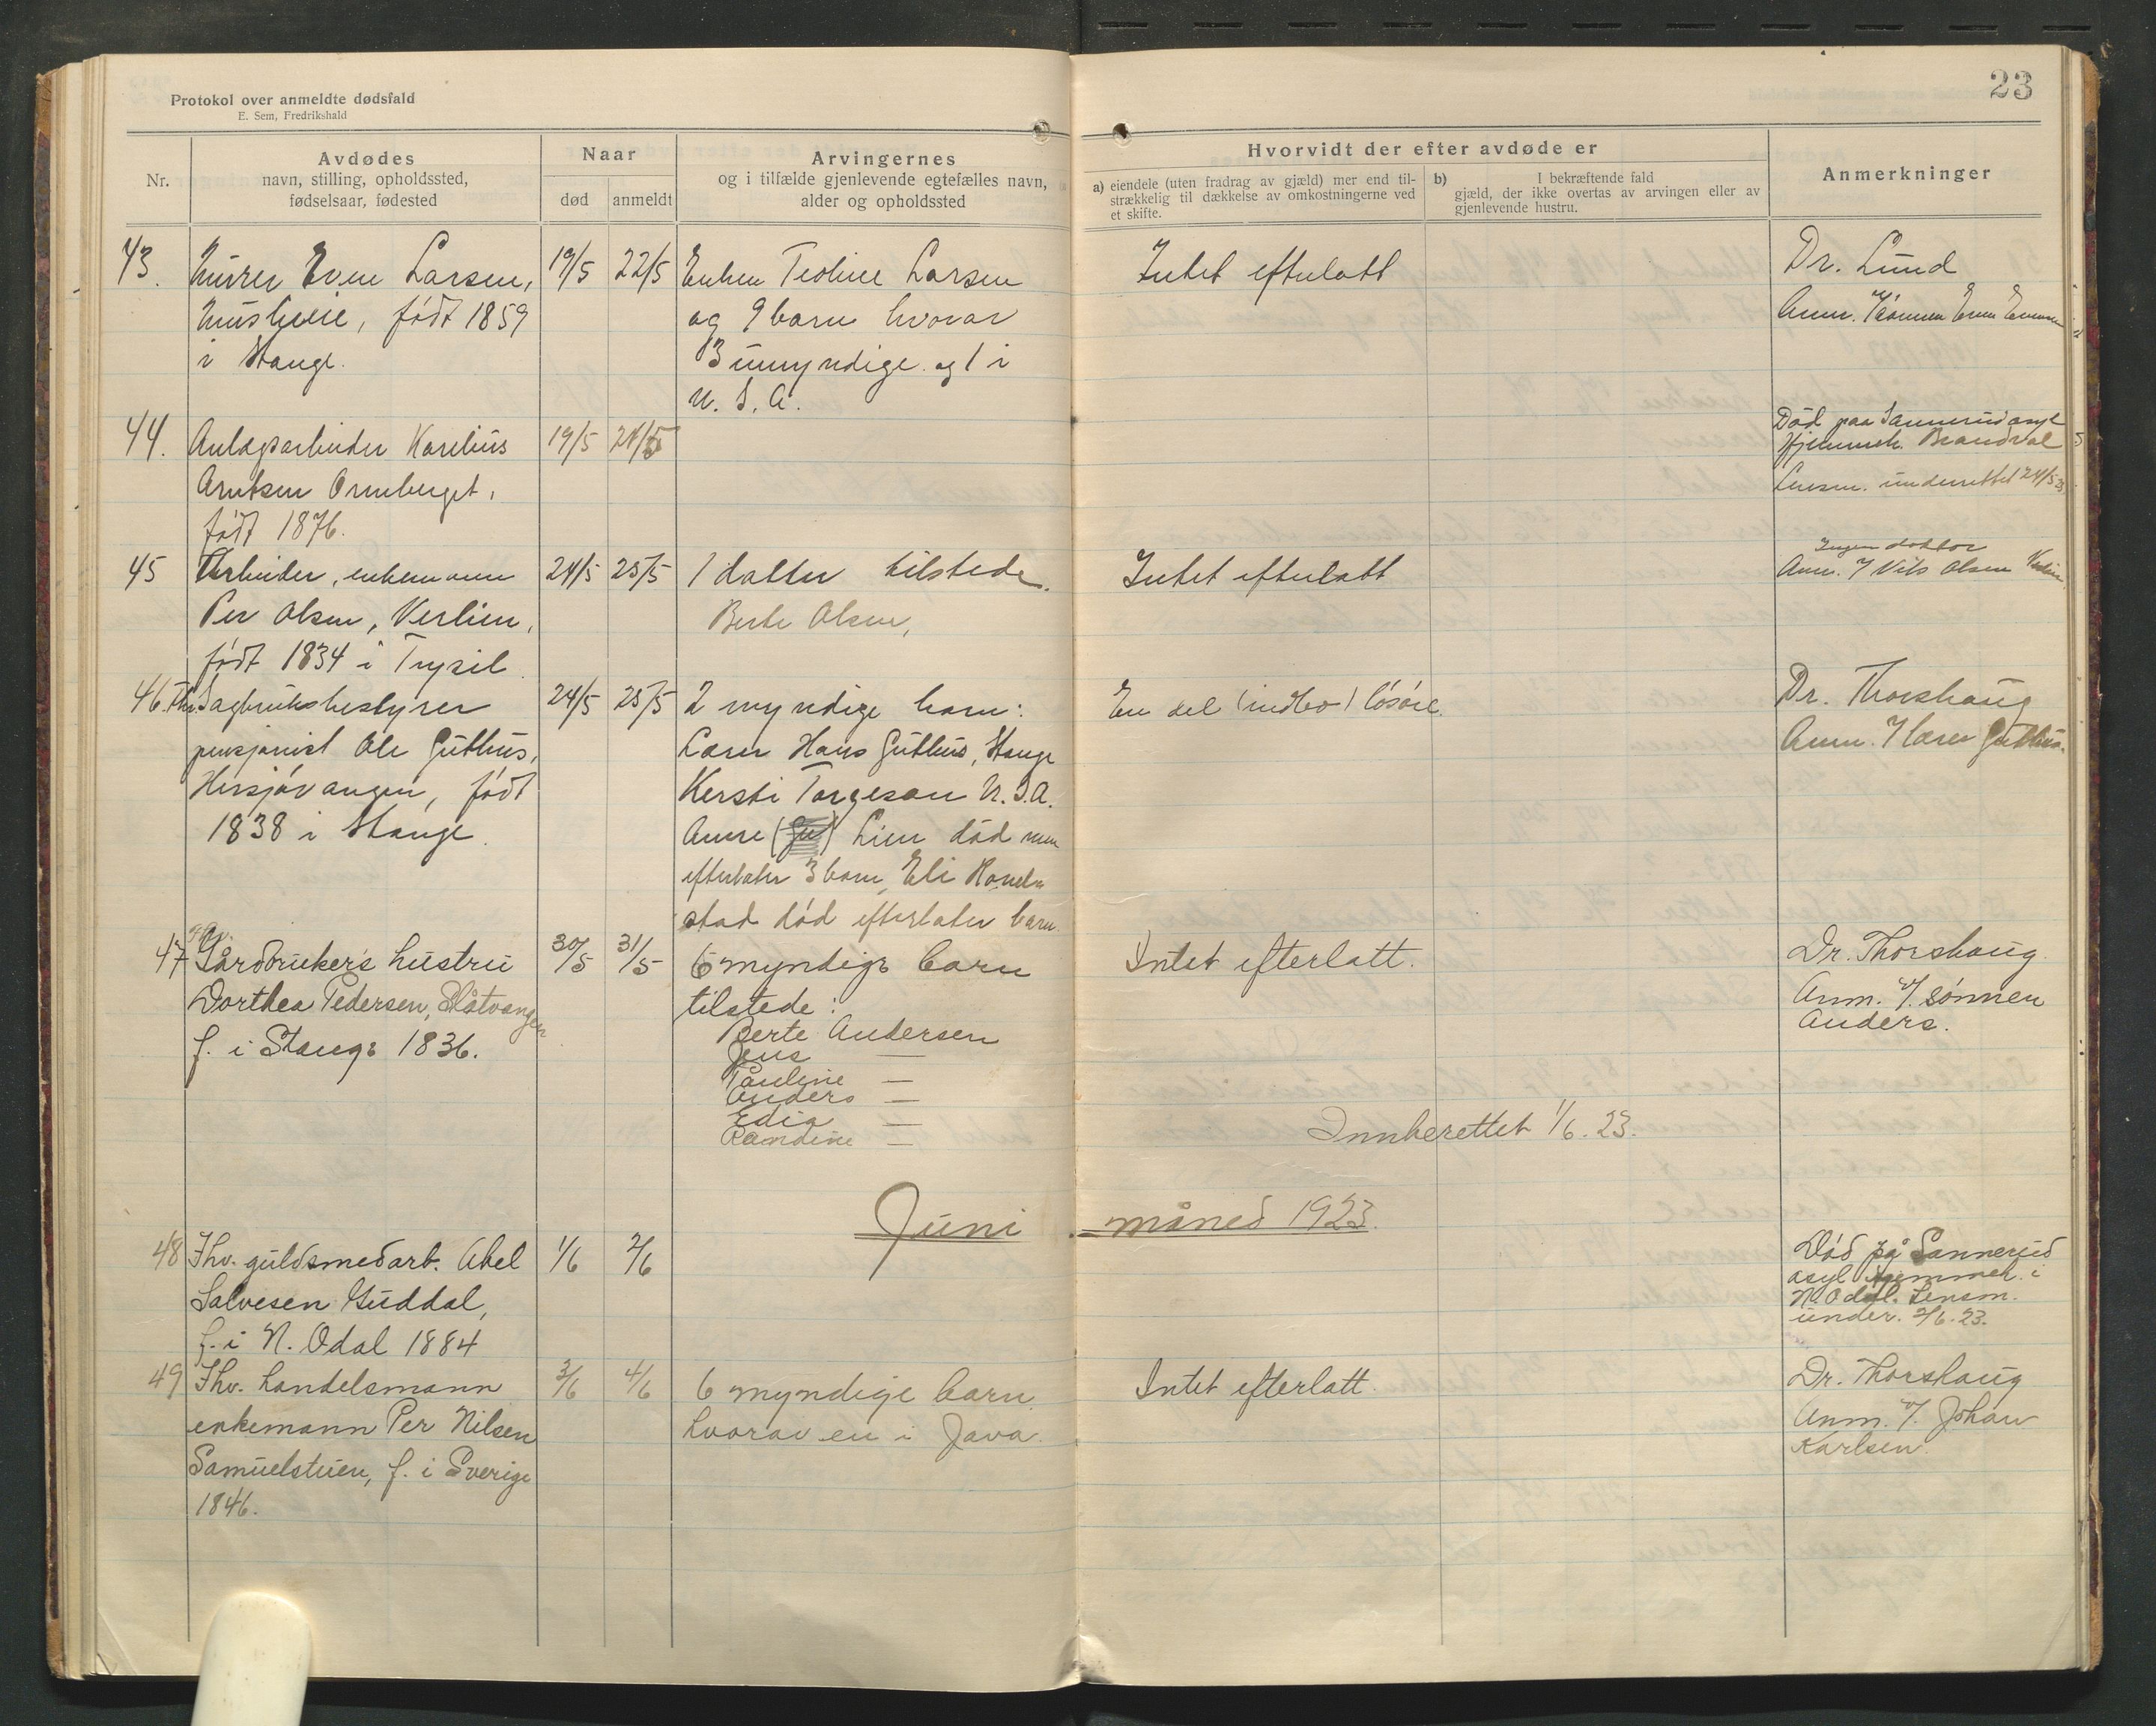 23
Protokol over anmeldte dødsfald
E. Sem, Fredrikshald
Nr.
Avdødes
navn, stilling, opholdssted,
fødselsaar, fødested
Naar
død
anmeldt
Arvingernes
og i tilfælde gjenlevende egtefælles navn,
alder og opholdssted
Hvorvidt der efter avdøde er
a) eiendele (uten fradrag av gjæld) mer end til-
strækkelig til dækkelse av omkostningerne ved
et skifte.
b) I bekræftende fald
gjæld, der ikke overtas av arvingen eller av
gjenlevende hustru.
Anmerkninger
43. Murer Even Larsen, 19/5 22/5 Enken Teoline Larsen Intet efterlatt Dr. Lund
født 1859 og 9 barn hvorav Anm. Even
i Stange. 3 umyndige og 1 i
U. S. A.
44. Anlægsarbeider Karelius 19/5 24/5 Død paa Sannerud asyl
Arntsen Ormberget, Hjemmeh. Brandval
født 1876. Lensm. underrettet 24/5 23
45 Arbeider, enkemann 24/5 25/5 1 datter tilstede. Intet efterlatt Ingen doktor
Per Olsen, Verlien, Berte Olsen, Anm. v/ Nils Olsen
født 1834 i Trysil.
46. Fhv. Sagbruksbestyrer 24/5 25/5 2 myndige barn: En del (indbo) løsøre. Dr. Thorshaug
pensjonist Ole Guthus, Lærer Hans Guthus, Stange Anm. v/ lærer Guthus.
Hersjøvangen, født Kersti Torgeson U. S. A.
1838 i Stange. Anne Lien død men
efterlater 3 barn, Eli
stad død efterlater barn.
47 Fhv. Gårdbrukers hustru 30/5 31/5 6 myndige barn Intet efterlatt. Dr. Thorshaug.
Dorthea Pedersen, Slåtvangen tilstede: Anm. v/ sønnen
f. i Stange 1836. Berte Andersen Anders.
Jens —
Pauline —
Anders —
Edia —
Randine —
Innberettet 1/6. 23.
Juni måned 1923.
48 Fhv. guldsmedarb. Abel 1/6 2/6 Død på Sannerud
Salvesen Guddal, asyl hjemmeh. i
f. i N. Odal 1884 N. Odal. Lensm.
under. 2/6. 23.
49 Fhv. handelsmann 3/6 4/6 6 myndige barn Intet efterlatt. Dr. Thorshaug
enkemann Per Nilsen hvorav en i Java. Anm. v/ Johan
Samuelstuen, f. i Sverige Karlsen.
1846.